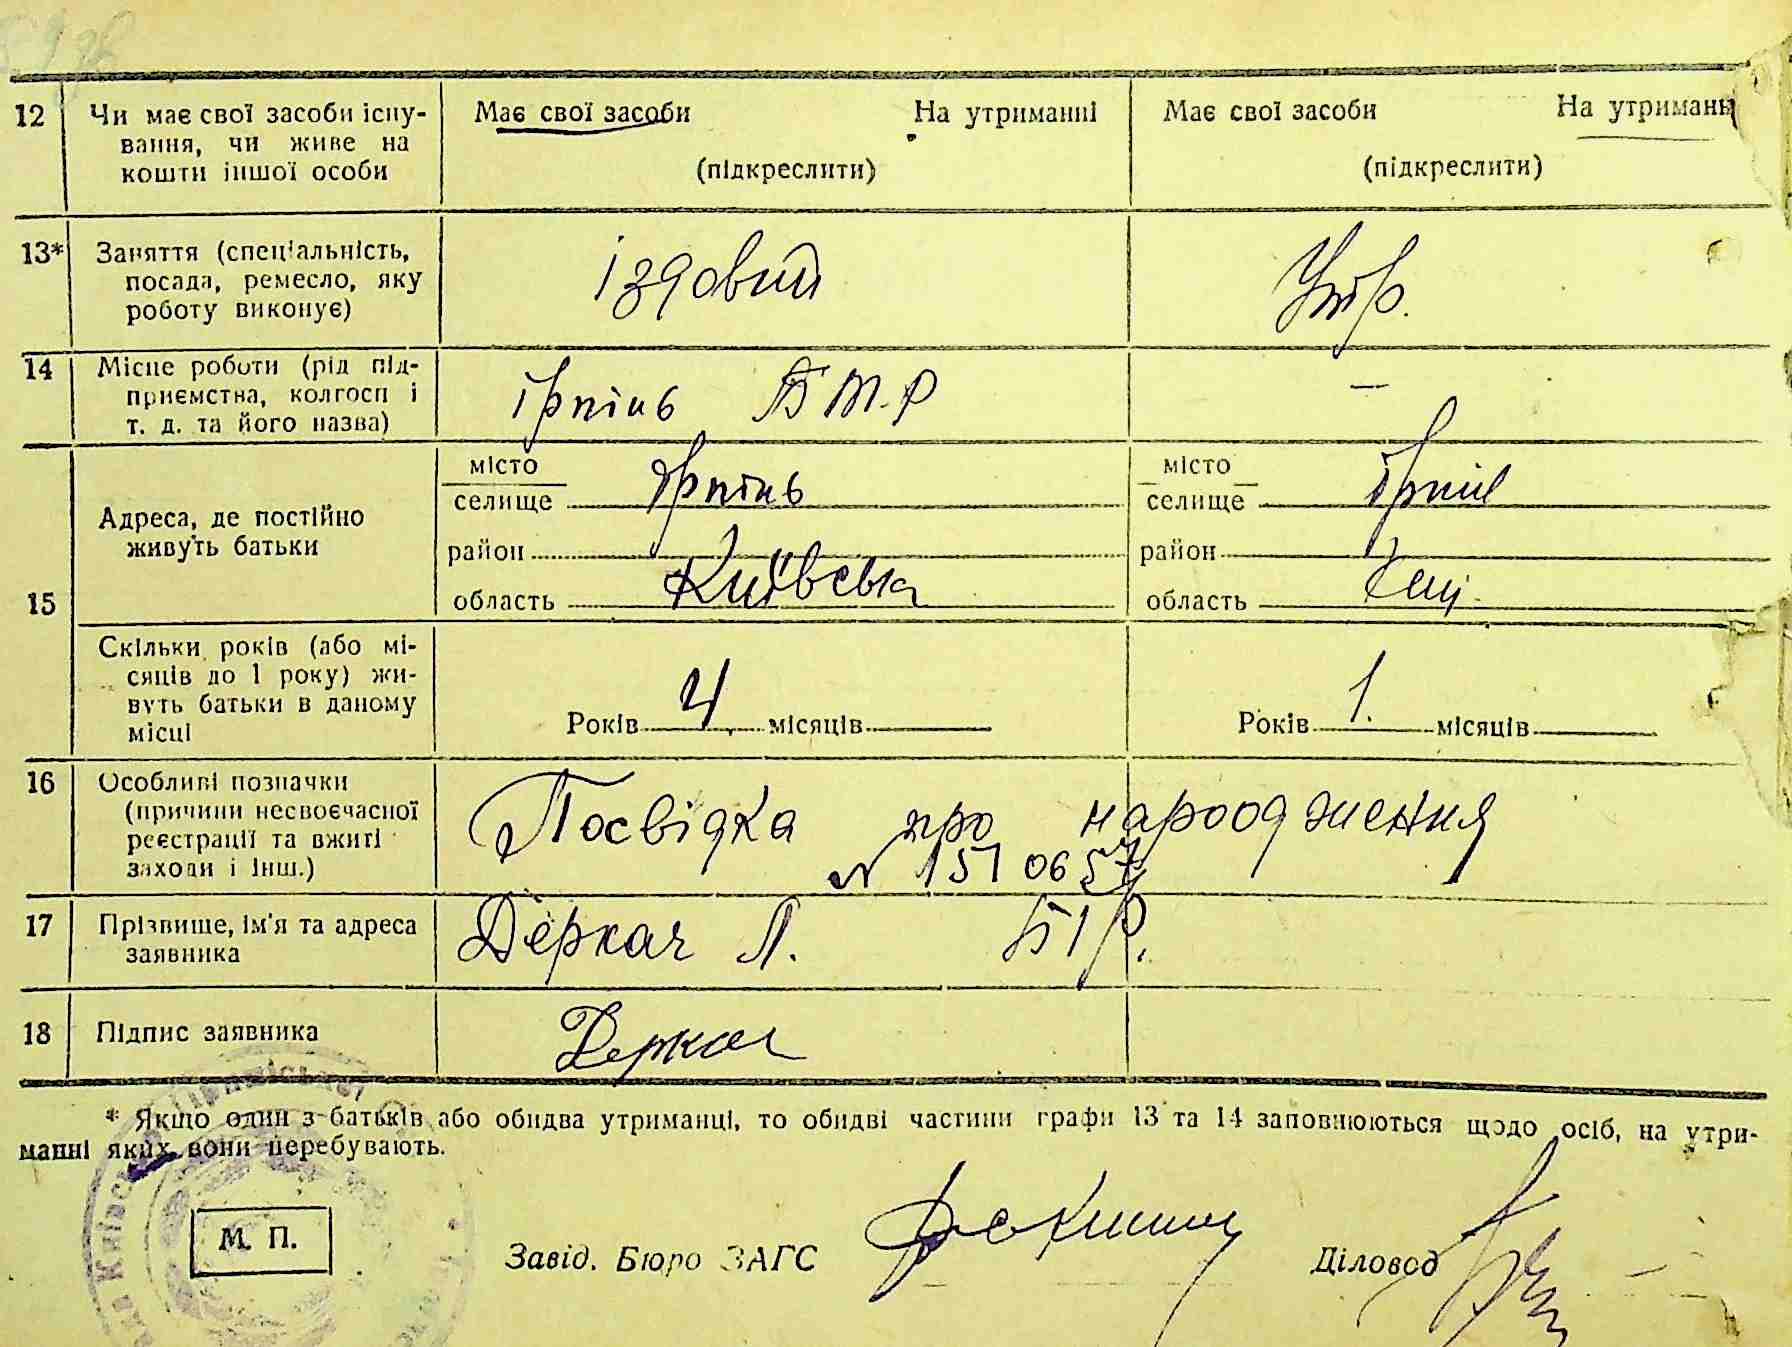 12 Чи має свої засоби існу-
вання, чи живе на
кошти іншої особи
Має свої засоби На утриманні
(підкреслити)
Має свої засоби На утриманн
(підкреслити)
13* Заняття (спеціальність,
посада, ремесло, яку
роботу виконує)
їздовий
Утр.
14 Місце роботи (рід під-
приємства, колгосп і
т. д. та його назва)
ірпінь
—
15 Адреса, де постійно
живуть батьки
місто
селище Ірпінь
район
область Київська
місто
селище Ірпінь
район
область
Скільки років (або мі-
сяців до 1 року) жи-
вуть батьки в даному
місці
Років 4 місяців
Років 1. місяців
16 Особливі позначки
(причини несвоєчасної
реєстрації та вжиті
заходи і інш.)
Посвідка про народження
N 1510657
17 Прізвище, ім'я та адреса
заявника
Деркач Л. БТР.
18 Підпис заявника
Деркач
* Якщо один з батьків або обидва утриманці, то обидві частини графи 13 та 14 заповнюються щодо осіб, на утри-
манні яких вони перебувають.
М. П.
Завід. Бюро ЗАГС
Діловод